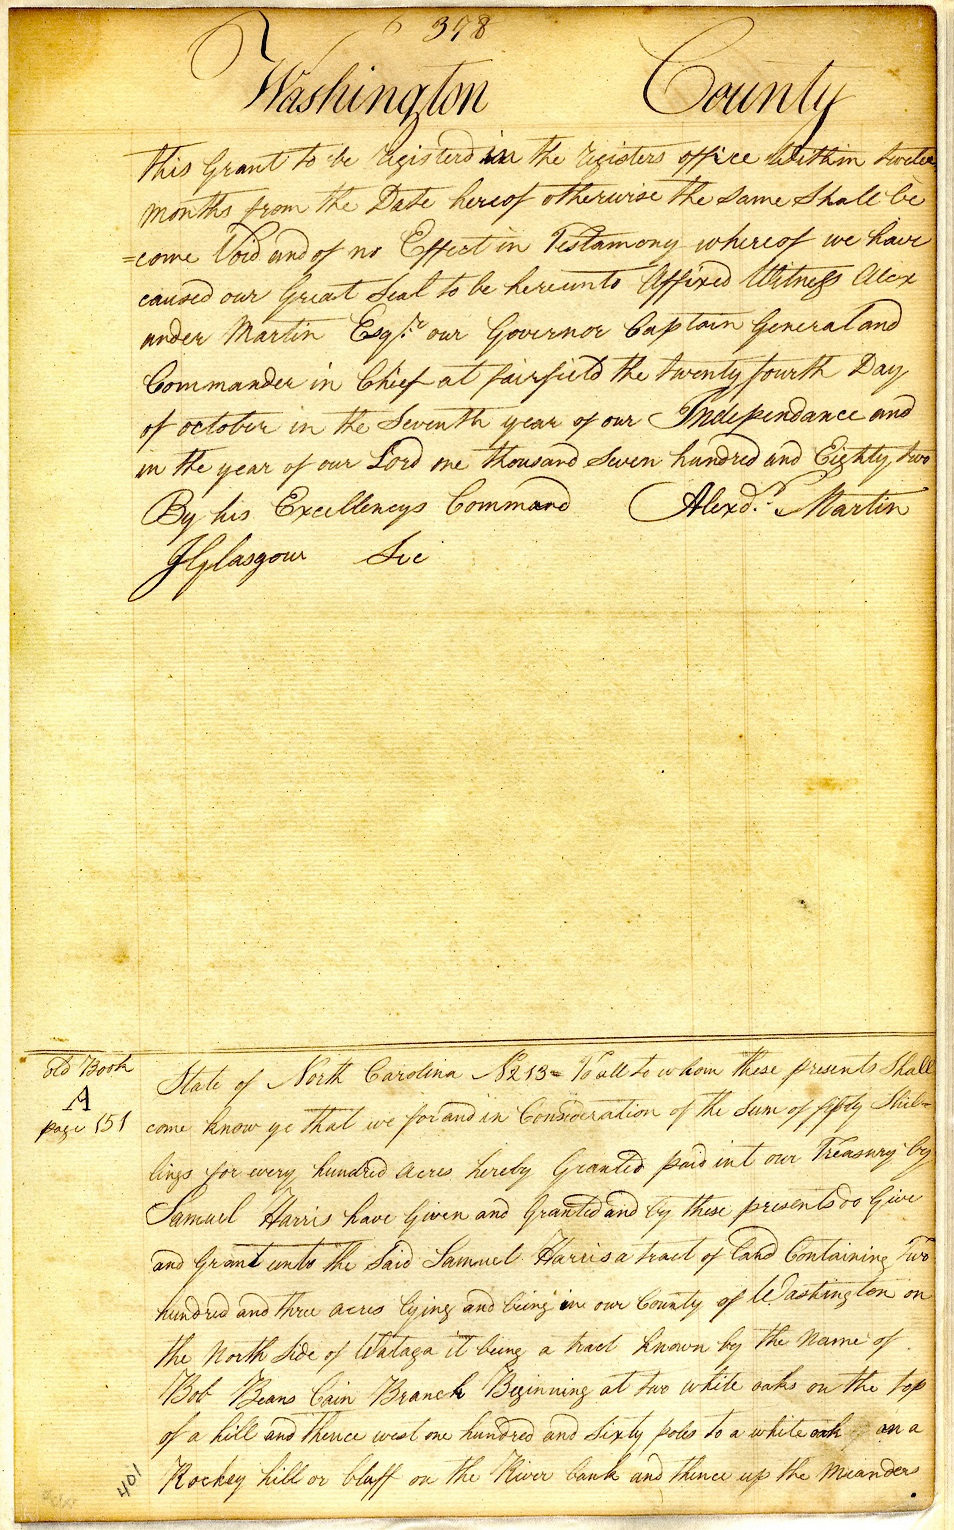 378
Washington County
this Grant to be registerd in the registers office within twelve
months from the Date hereof otherwise the same Shall be
=come Void and of no Effect in Testamony whereof we have
caused our Great Seal to be hereunto Affixed Witness Alex
ander Martin Esqr. our Governor Captain General and
Commander in Chief at fairfield the twenty fourth Day
of october in the Seventh year of our Independance and
in the year of our Lord one thousand Seven hundred and Eighty two
By his Excellencys Command Alexdr. Martin
J Glasgow Sec
old Book
A
page 151
State of North Carolina No 213 = To all to whom these presents Shall
come know ye that we for and in Consideration of the Sum of fifty Shil=
lings for every hundred acres hereby Granted paid int our Treasury by
Samuel Harris have Given and Granted and by these presents do Give
and Grant unto the Said Samuel Harris a tract of Land Containing Two
hundred and three acres lying and being in our County of Washington on
the North Side of Wataga it being a tract known by the Name of
Bob Beans Cain Branch Beginning at two white oaks on the top
of a hill and thence west one hundred and Sixty poles to a white oak on a
Rockey hill or bluff on the River bank and thence up the meanders
401